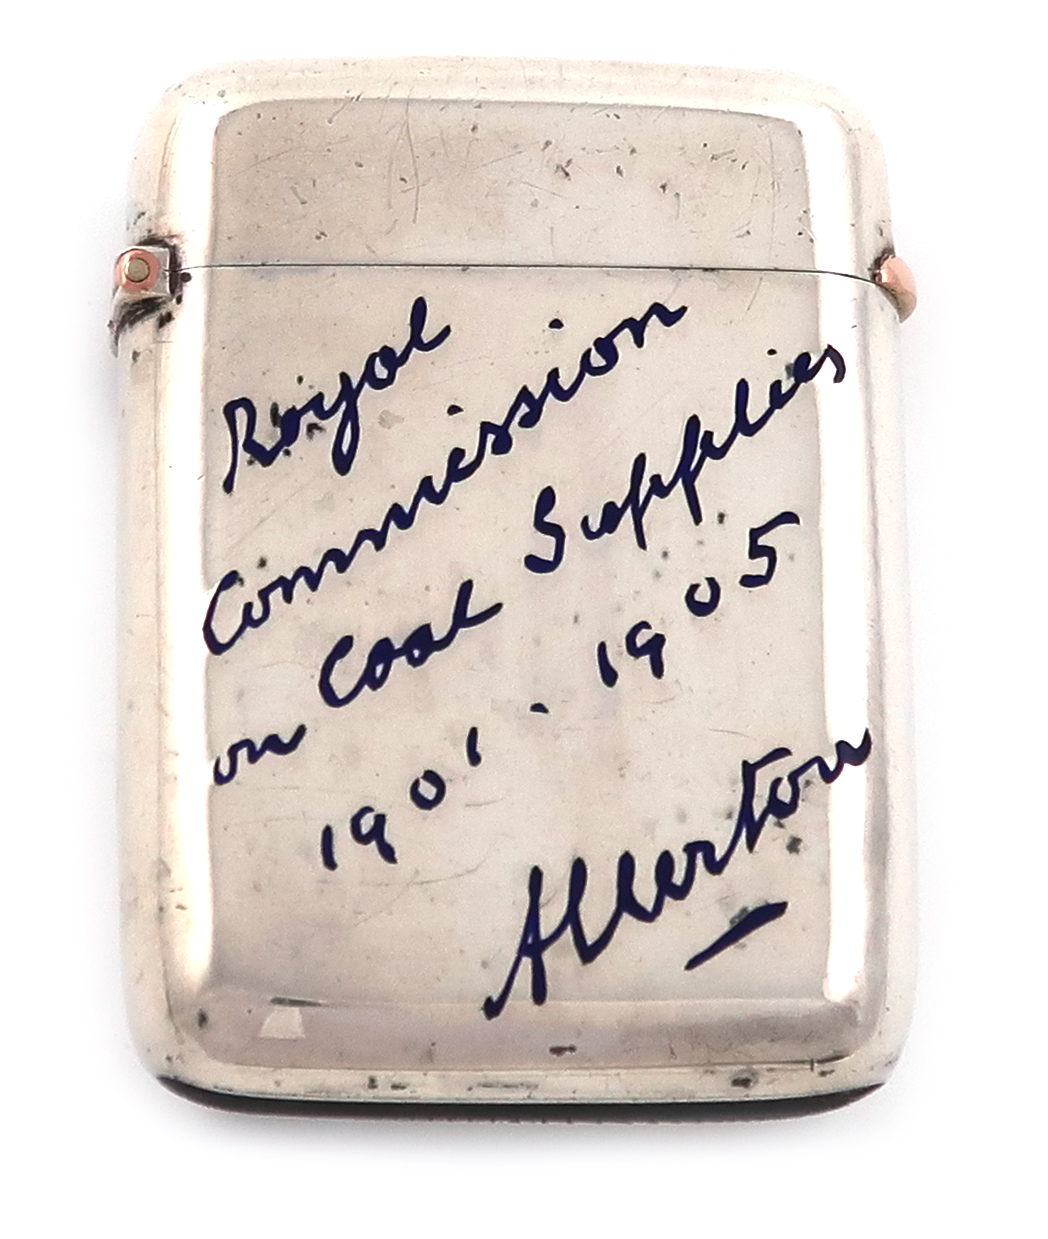 Royal
Commission
on Coal Supplies
1901 - 1905
Allerton